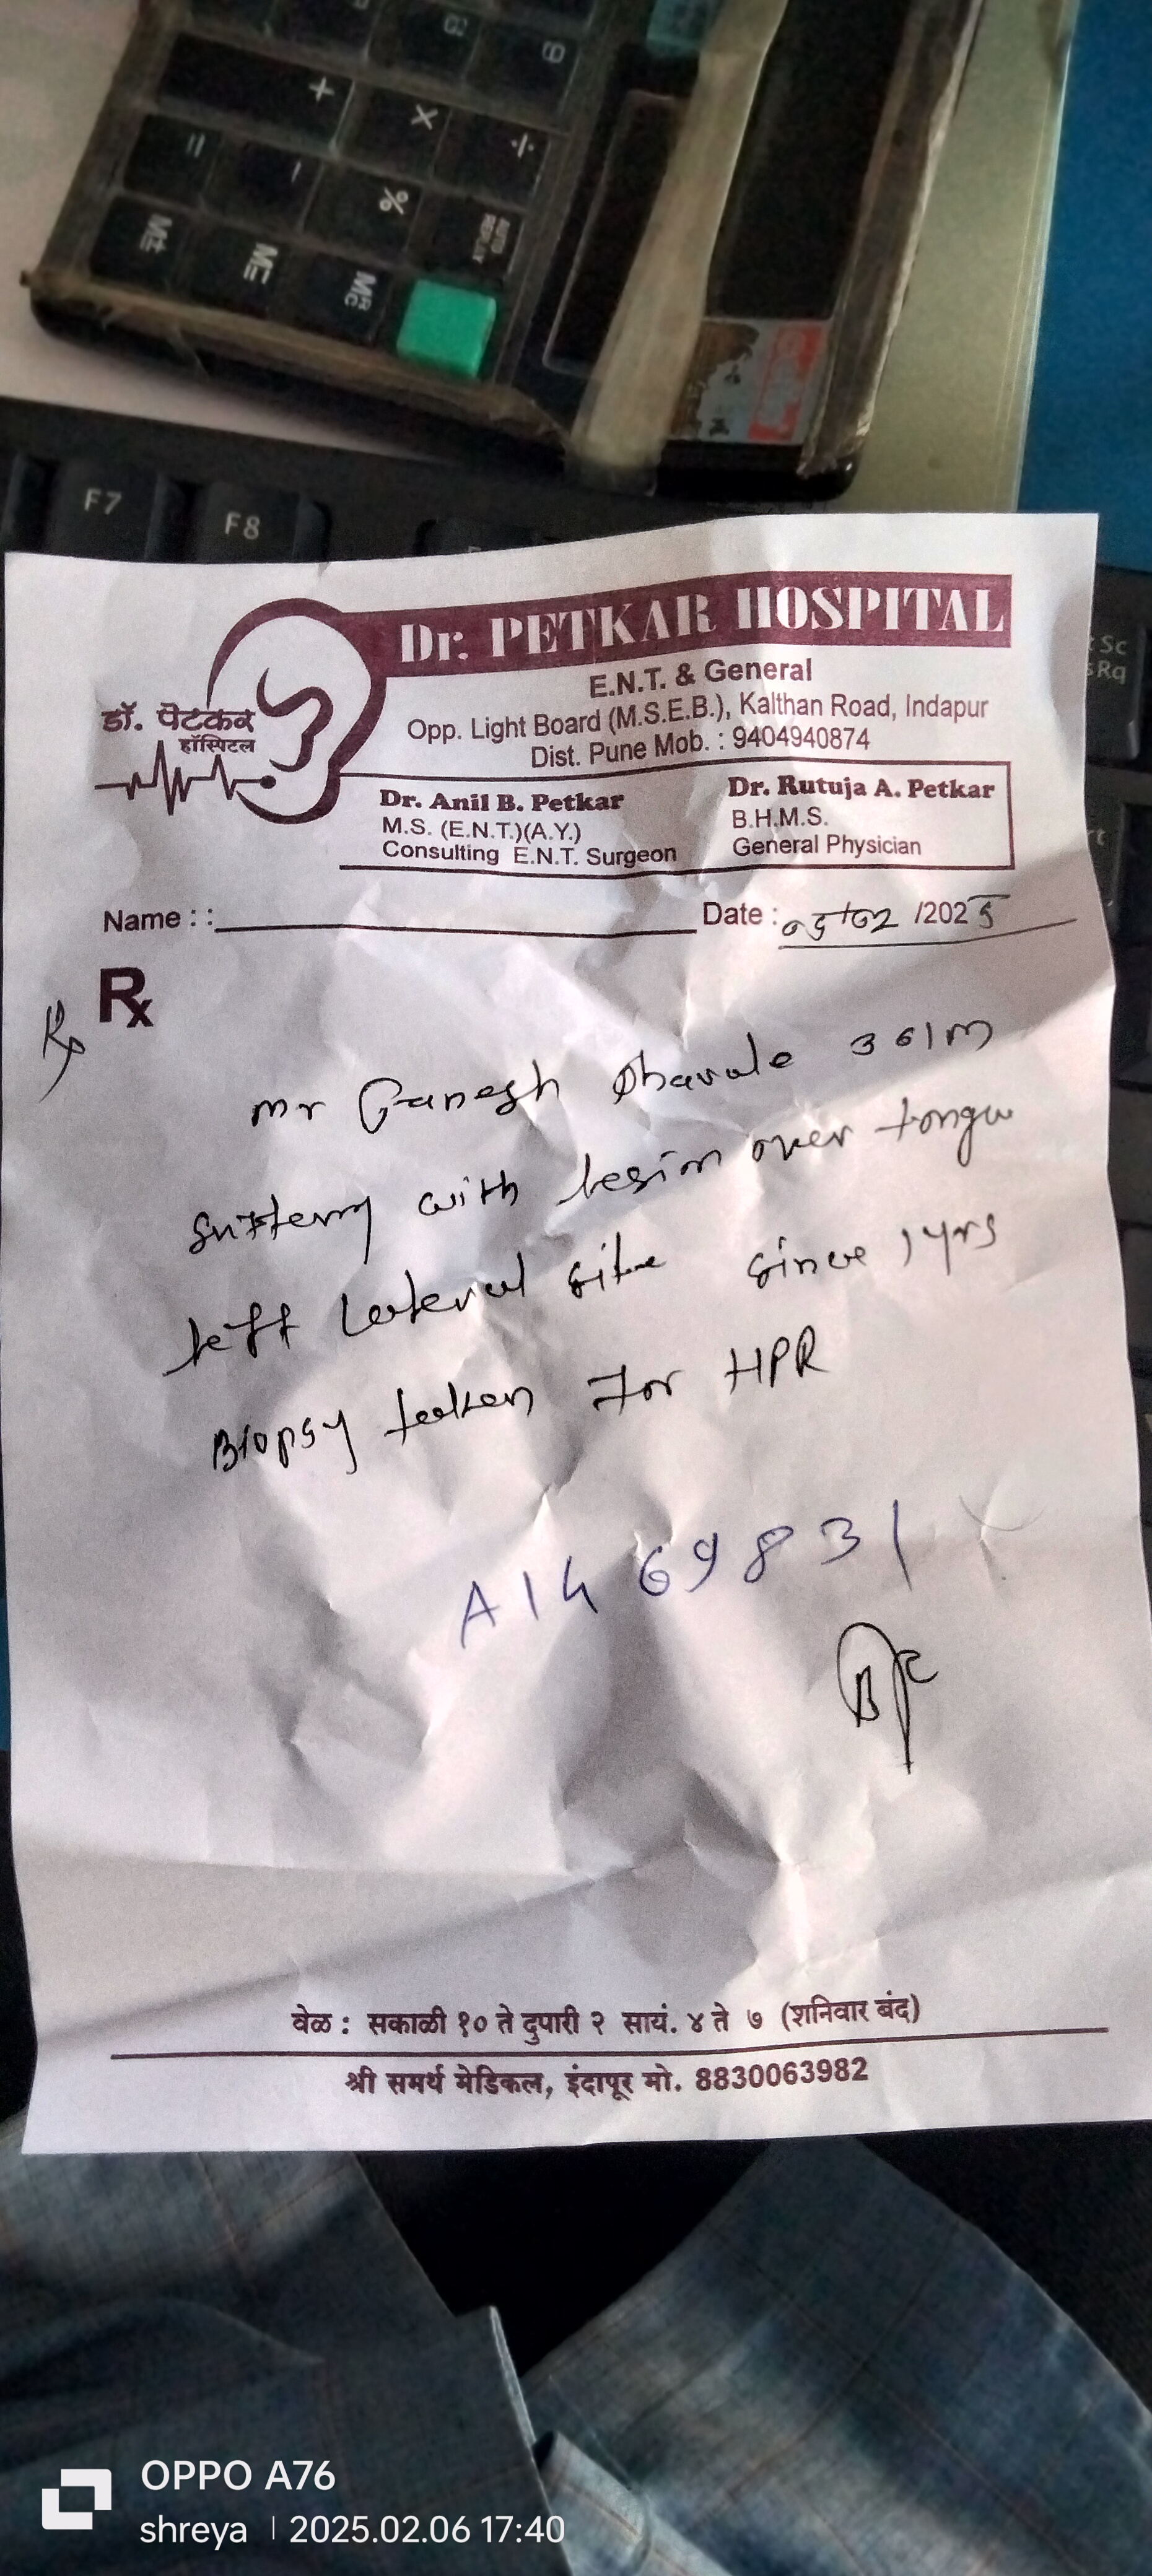 6
+ × ÷
= - % AUTO REPLAY
M± M= MRC
F7 F8
Sc
Rq
Dr. PETKAR HOSPITAL
E.N.T. & General
Opp. Light Board (M.S.E.B.), Kalthan Road, Indapur
Dist. Pune Mob. : 9404940874
डॉ. पेटकर
हॉस्पिटल
Dr. Anil B. Petkar
M.S. (E.N.T.)(A.Y.)
Consulting E.N.T. Surgeon
Dr. Rutuja A. Petkar
B.H.M.S.
General Physician
Name : : Date : 05/02 /2025
Rx
mr Ganesh Dharale 36/m
suffering with lesion over tongue
left lateral site since 1 yrs
Biopsy taken For HPR
A1469831
वेळ : सकाळी १० ते दुपारी २ सायं. ४ ते ७ (शनिवार बंद)
श्री समर्थ मेडिकल, इंदापूर मो. 8830063982
OPPO A76
shreya | 2025.02.06 17:40